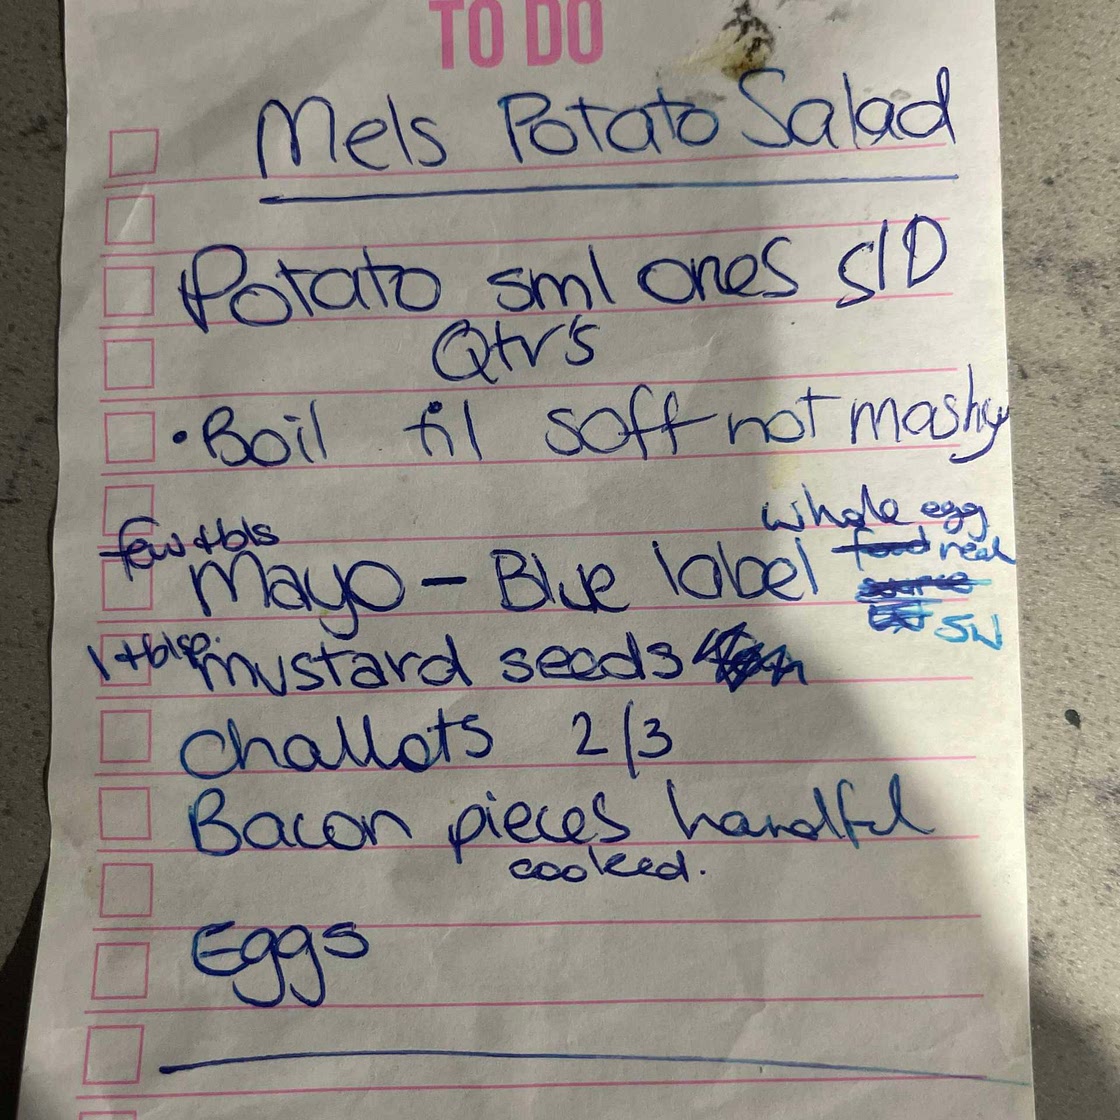 TO DO
Mels Potato Salad
Potato sml ones S/D
Qtr's
• Boil til soft not mashy
few tbls
whole egg
Mayo - Blue label real
SW
1 tblsp. mustard seeds
challots 2/3
Bacon pieces handful
cooked.
Eggs